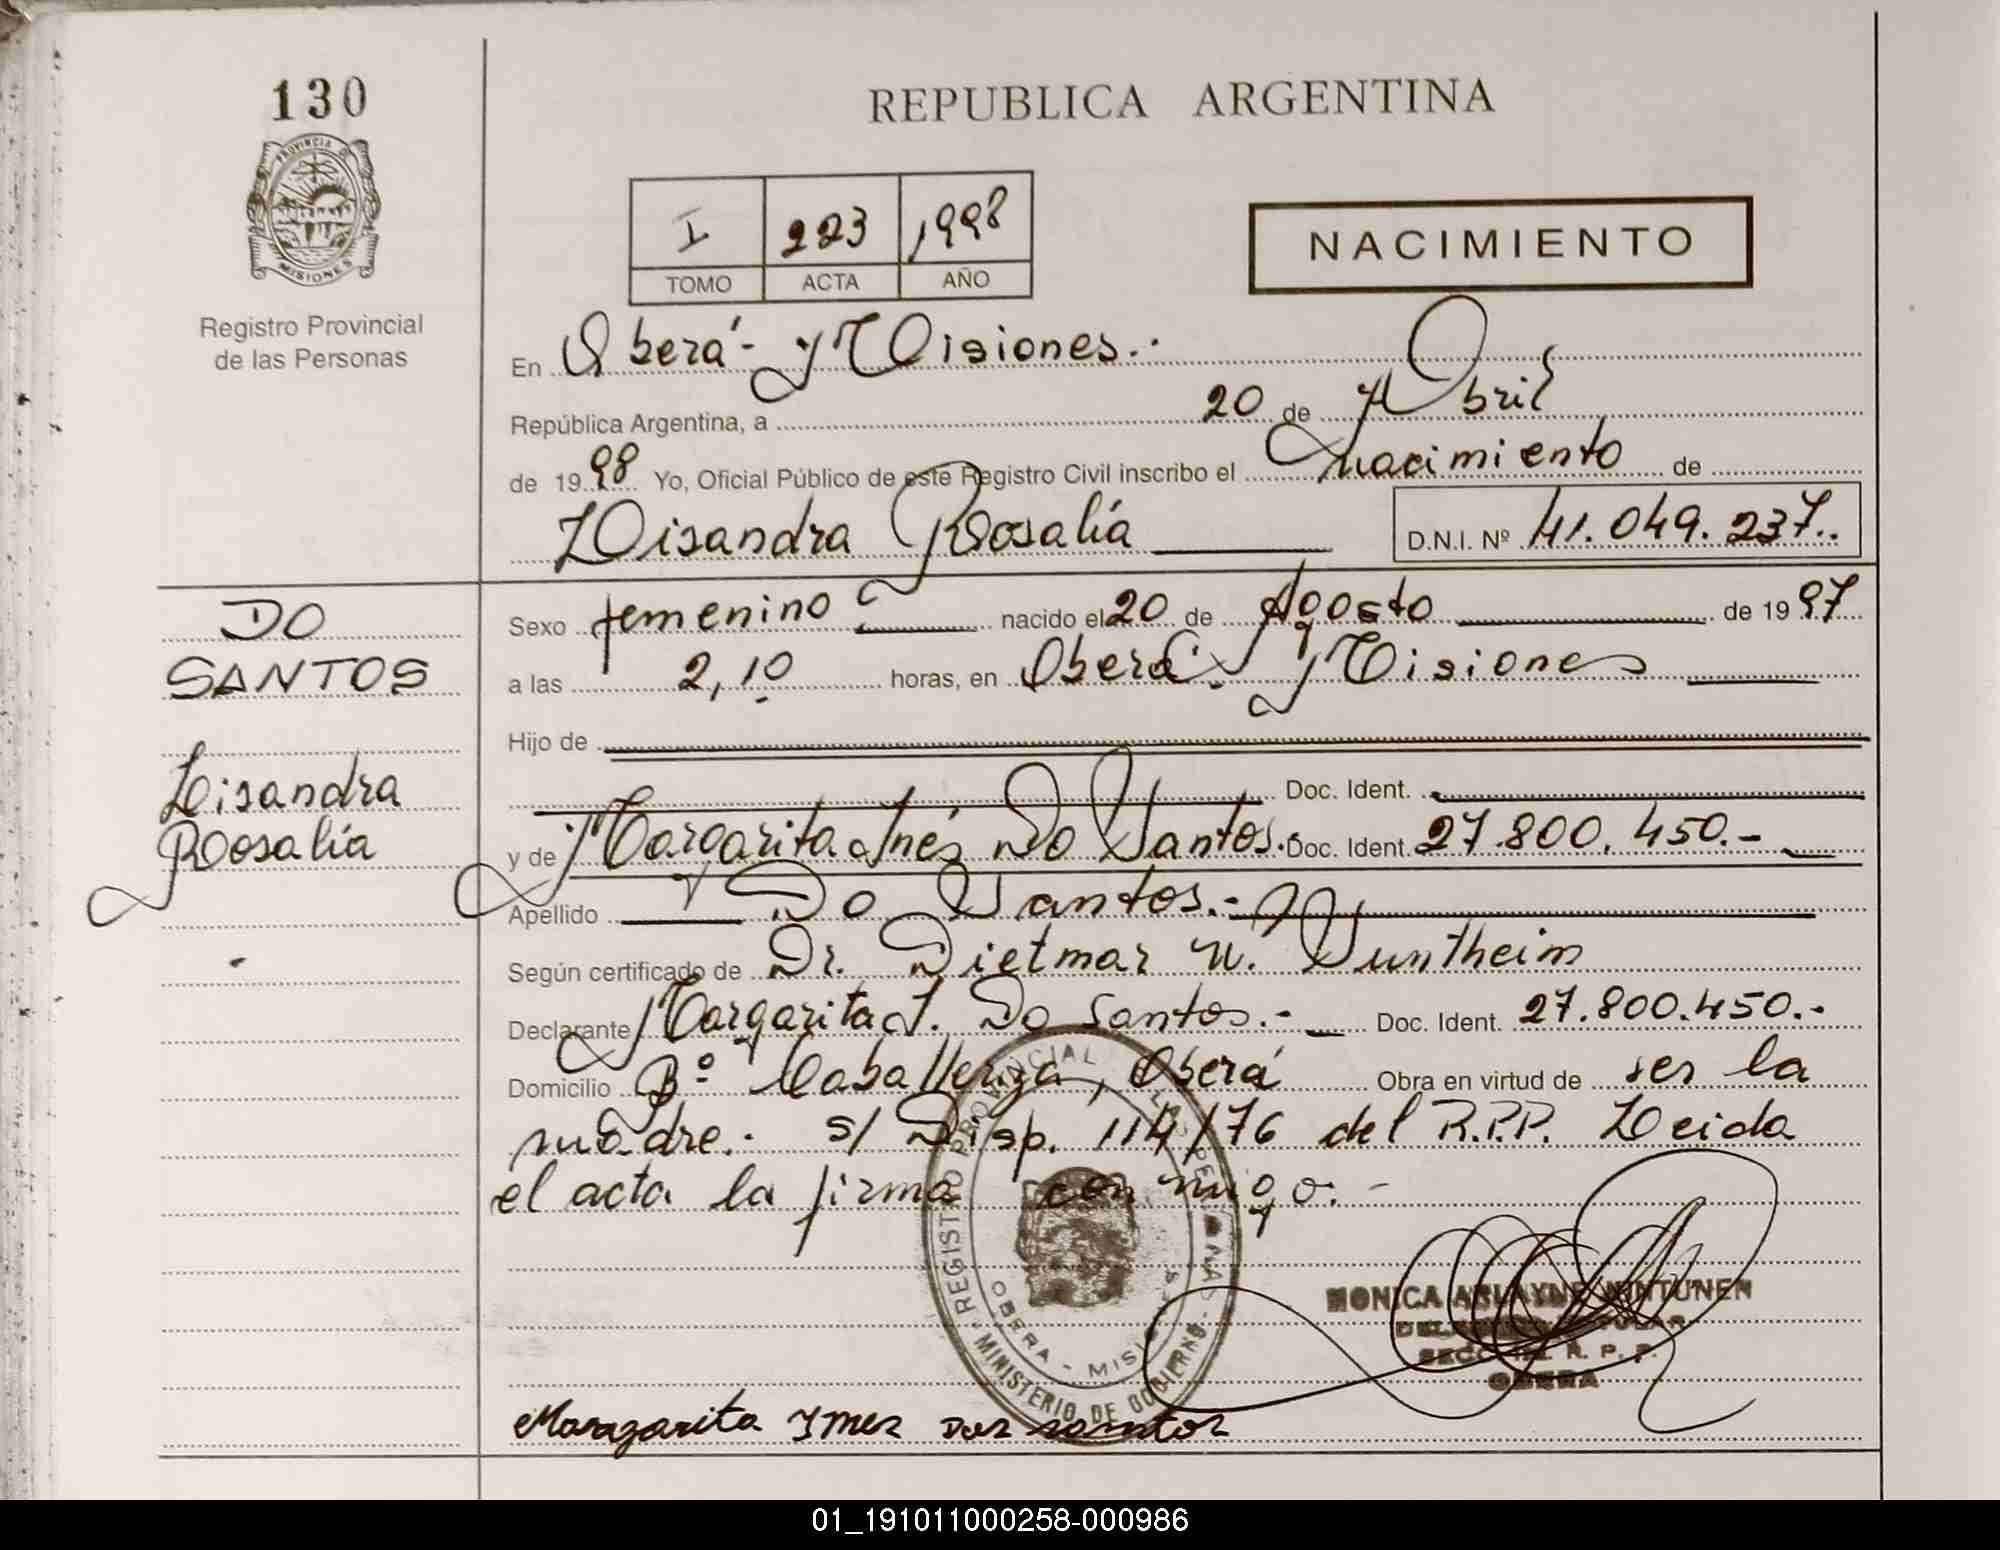 130
REPUBLICA ARGENTINA
PROVINCIA D
MISIONES
I 223 1998
TOMO ACTA AÑO
NACIMIENTO
Registro Provincial
de las Personas
En Oberá - Misiones.-
República Argentina, a 20 de Abril
de 19 98 Yo, Oficial Público de este Registro Civil inscribo el nacimiento de
Lisandra Rosalía D.N.I. Nº 41.049.237..
DO
SANTOS
Lisandra
Rosalía
Sexo femenino nacido el 20 de Agosto de 19 97
a las 2,10 horas, en Oberá. Misiones
Hijo de
Doc. Ident.
y de Margarita Inés Do Santos. Doc. Ident. 27.800.450.-
Apellido Do Santos.-
Según certificado de Dr. Dietmar W.
Declarante Margarita I. Do Santos.- Doc. Ident. 27.800.450.-
Domicilio Bº Caballeriza, Oberá Obra en virtud de ser la
madre.- s/ Disp. 114/76 del R.P.P. Leida
el acta la firma conmigo.-
REGISTRO PROVINCIAL LAS PERSONAS
OBERA - MISIONES
MINISTERIO DE GOBIERNO
MONICA
R. P. P.
OBERA
Margarita Ines Dos santos
01_191011000258-000986